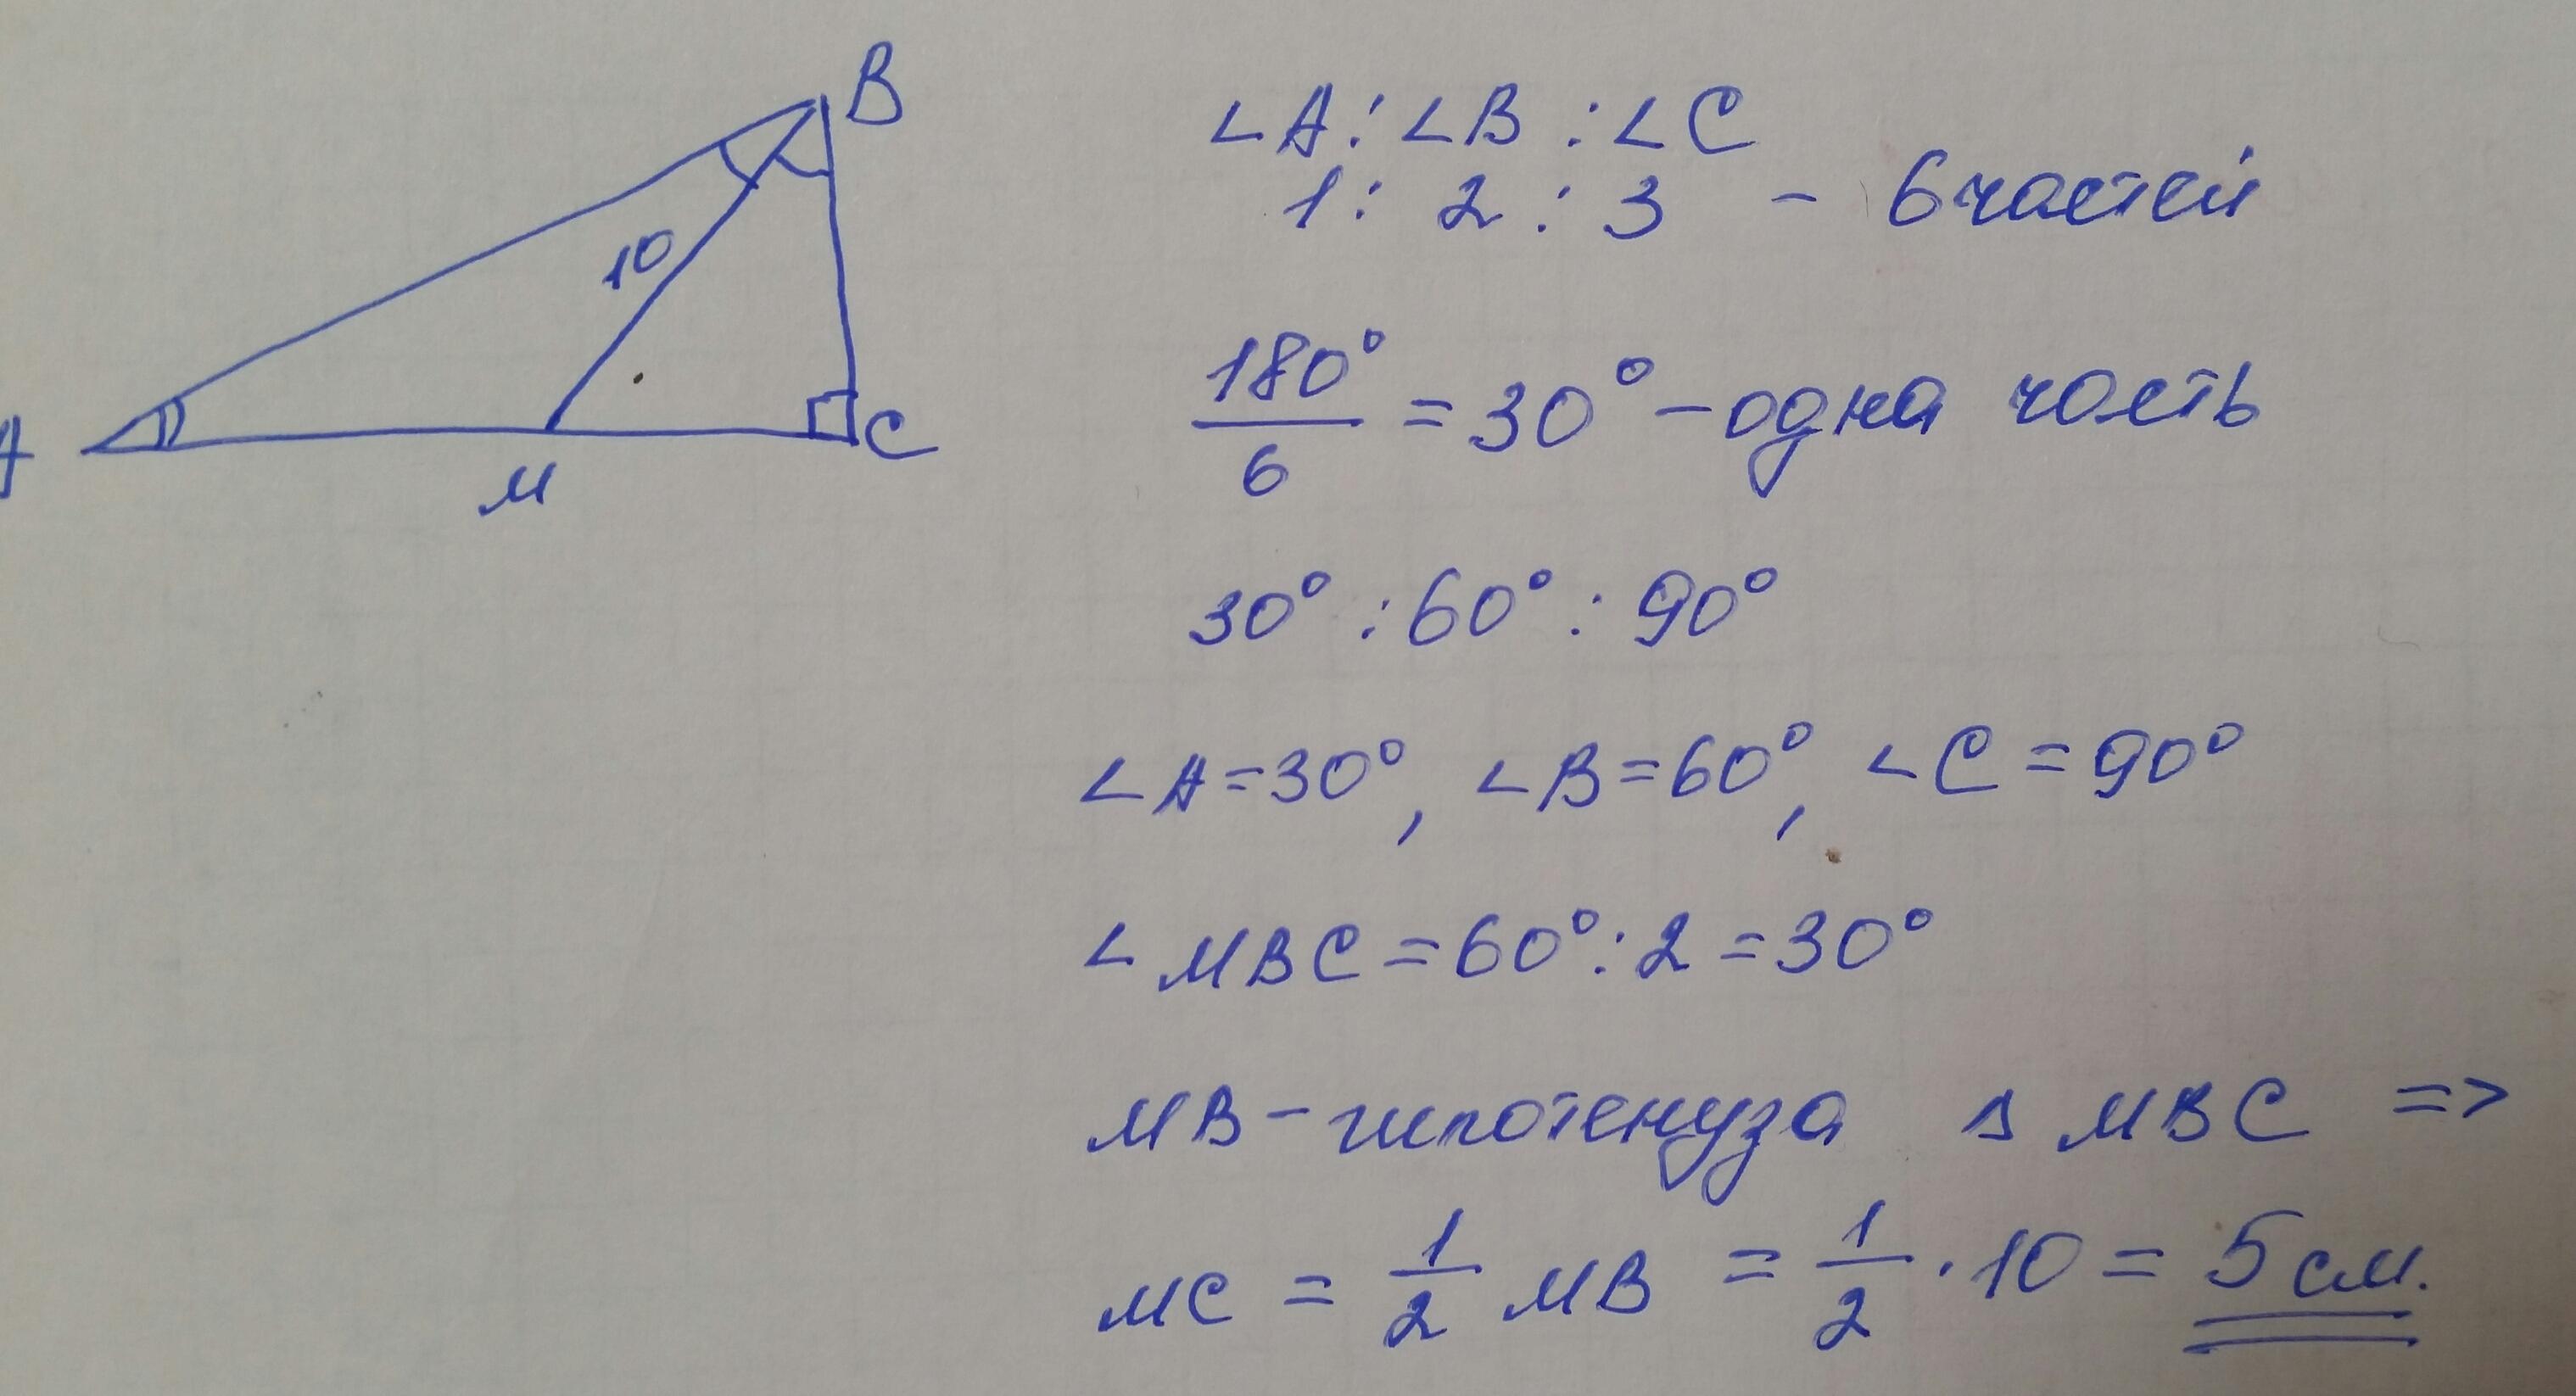 B
10
A
M
C
∠A : ∠B : ∠C
1 : 2 : 3 – 6 частей
180°/6 = 30° – одна часть
30° : 60° : 90°
∠A = 30°, ∠B = 60°, ∠C = 90°
∠MBC = 60° : 2 = 30°
MB – гипотенуза Δ MBC =>
MC = 1/2 MB = 1/2 · 10 = 5 см.